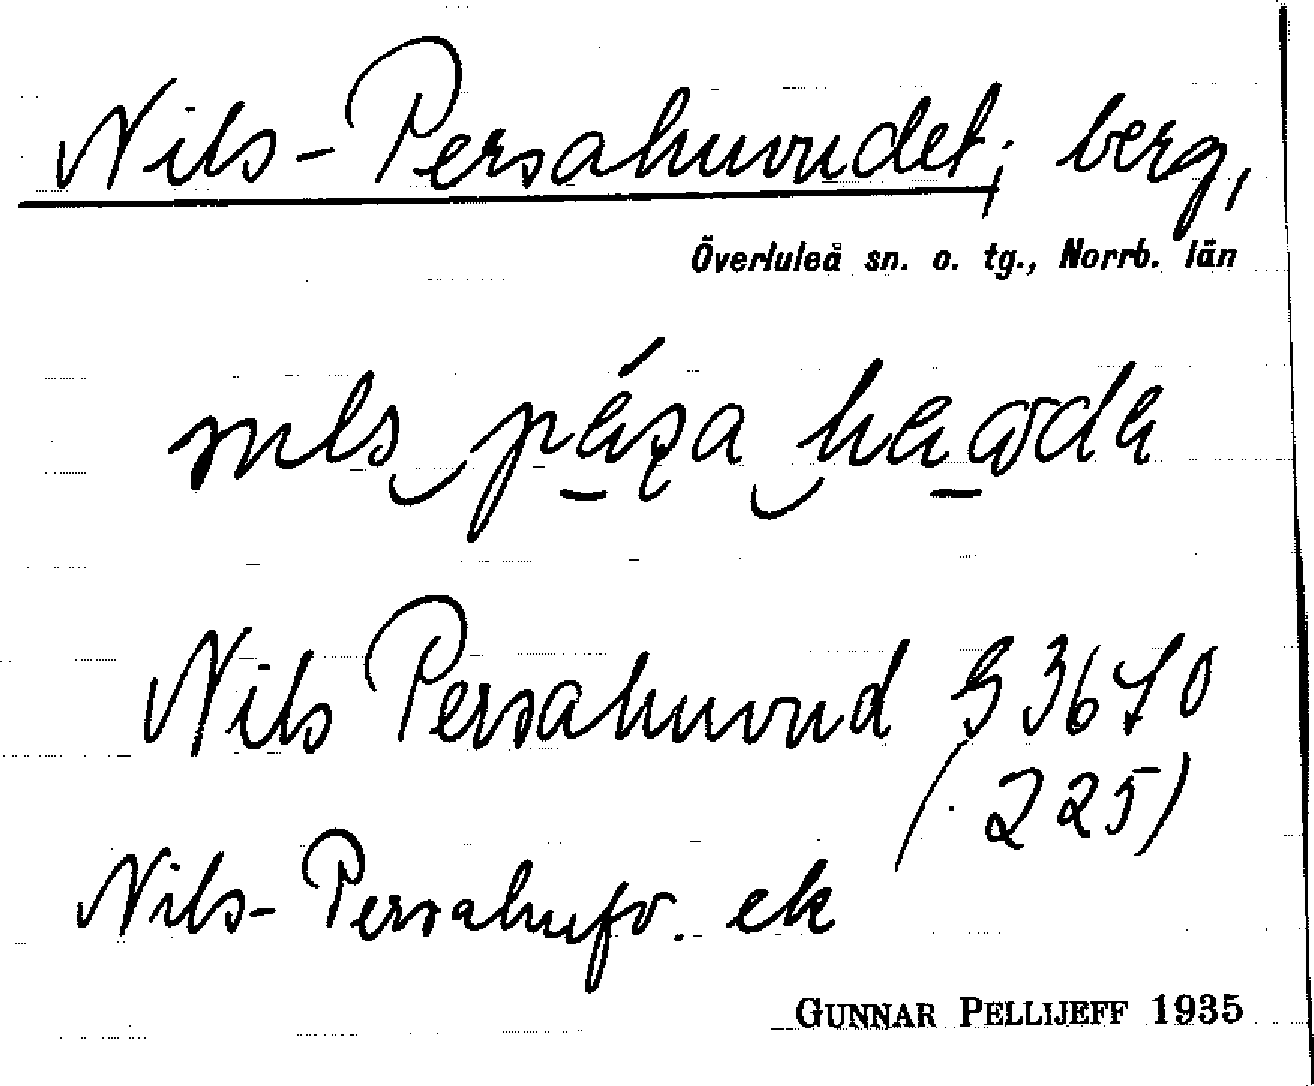 Nils-Persahuvudet, berg,
Överluleå sn. o. tg., Norrb. län
Nils Persahuvud S 3670
(225)
Nils-Persahufv. ek
GUNNAR PELLIJEFF 1935